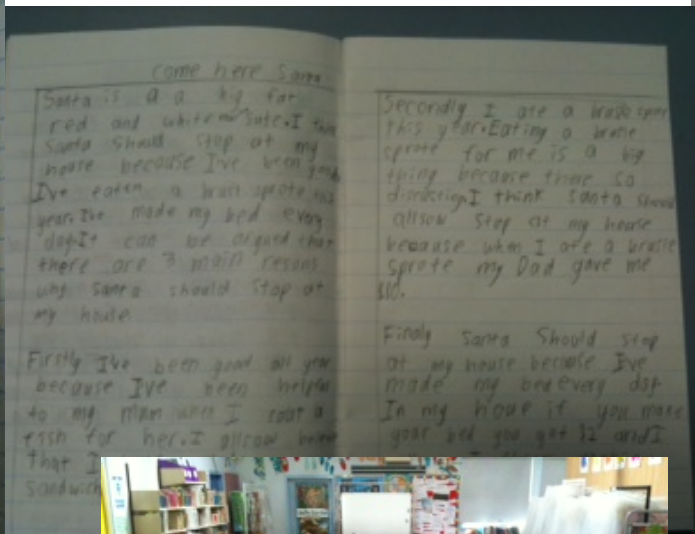 come here Santa
Santa is a a big fat
red and white sute. I think
Santa should stop at my
house because I've been good
I've eaten a brusl sprote this
year. I've made my bed every
day. It can be argued that
there are 3 main resons
why Santa should stop at
my house.
Firstly I've been good all year
because I've been helpful
to my mum when I
fish for her. I allsow
that I
sandwich
Secondly I ate a brusle sprote
this year. Eating a brusle
sprote for me is a big
thing because there so
I think santa should
allsow stop at my house
because when I ate a brusle
sprote my Dad gave me
$10.
Finaly Santa Should stop
at my house because I've
made my bed every day
In my house if you make
your bed you get $2 and I